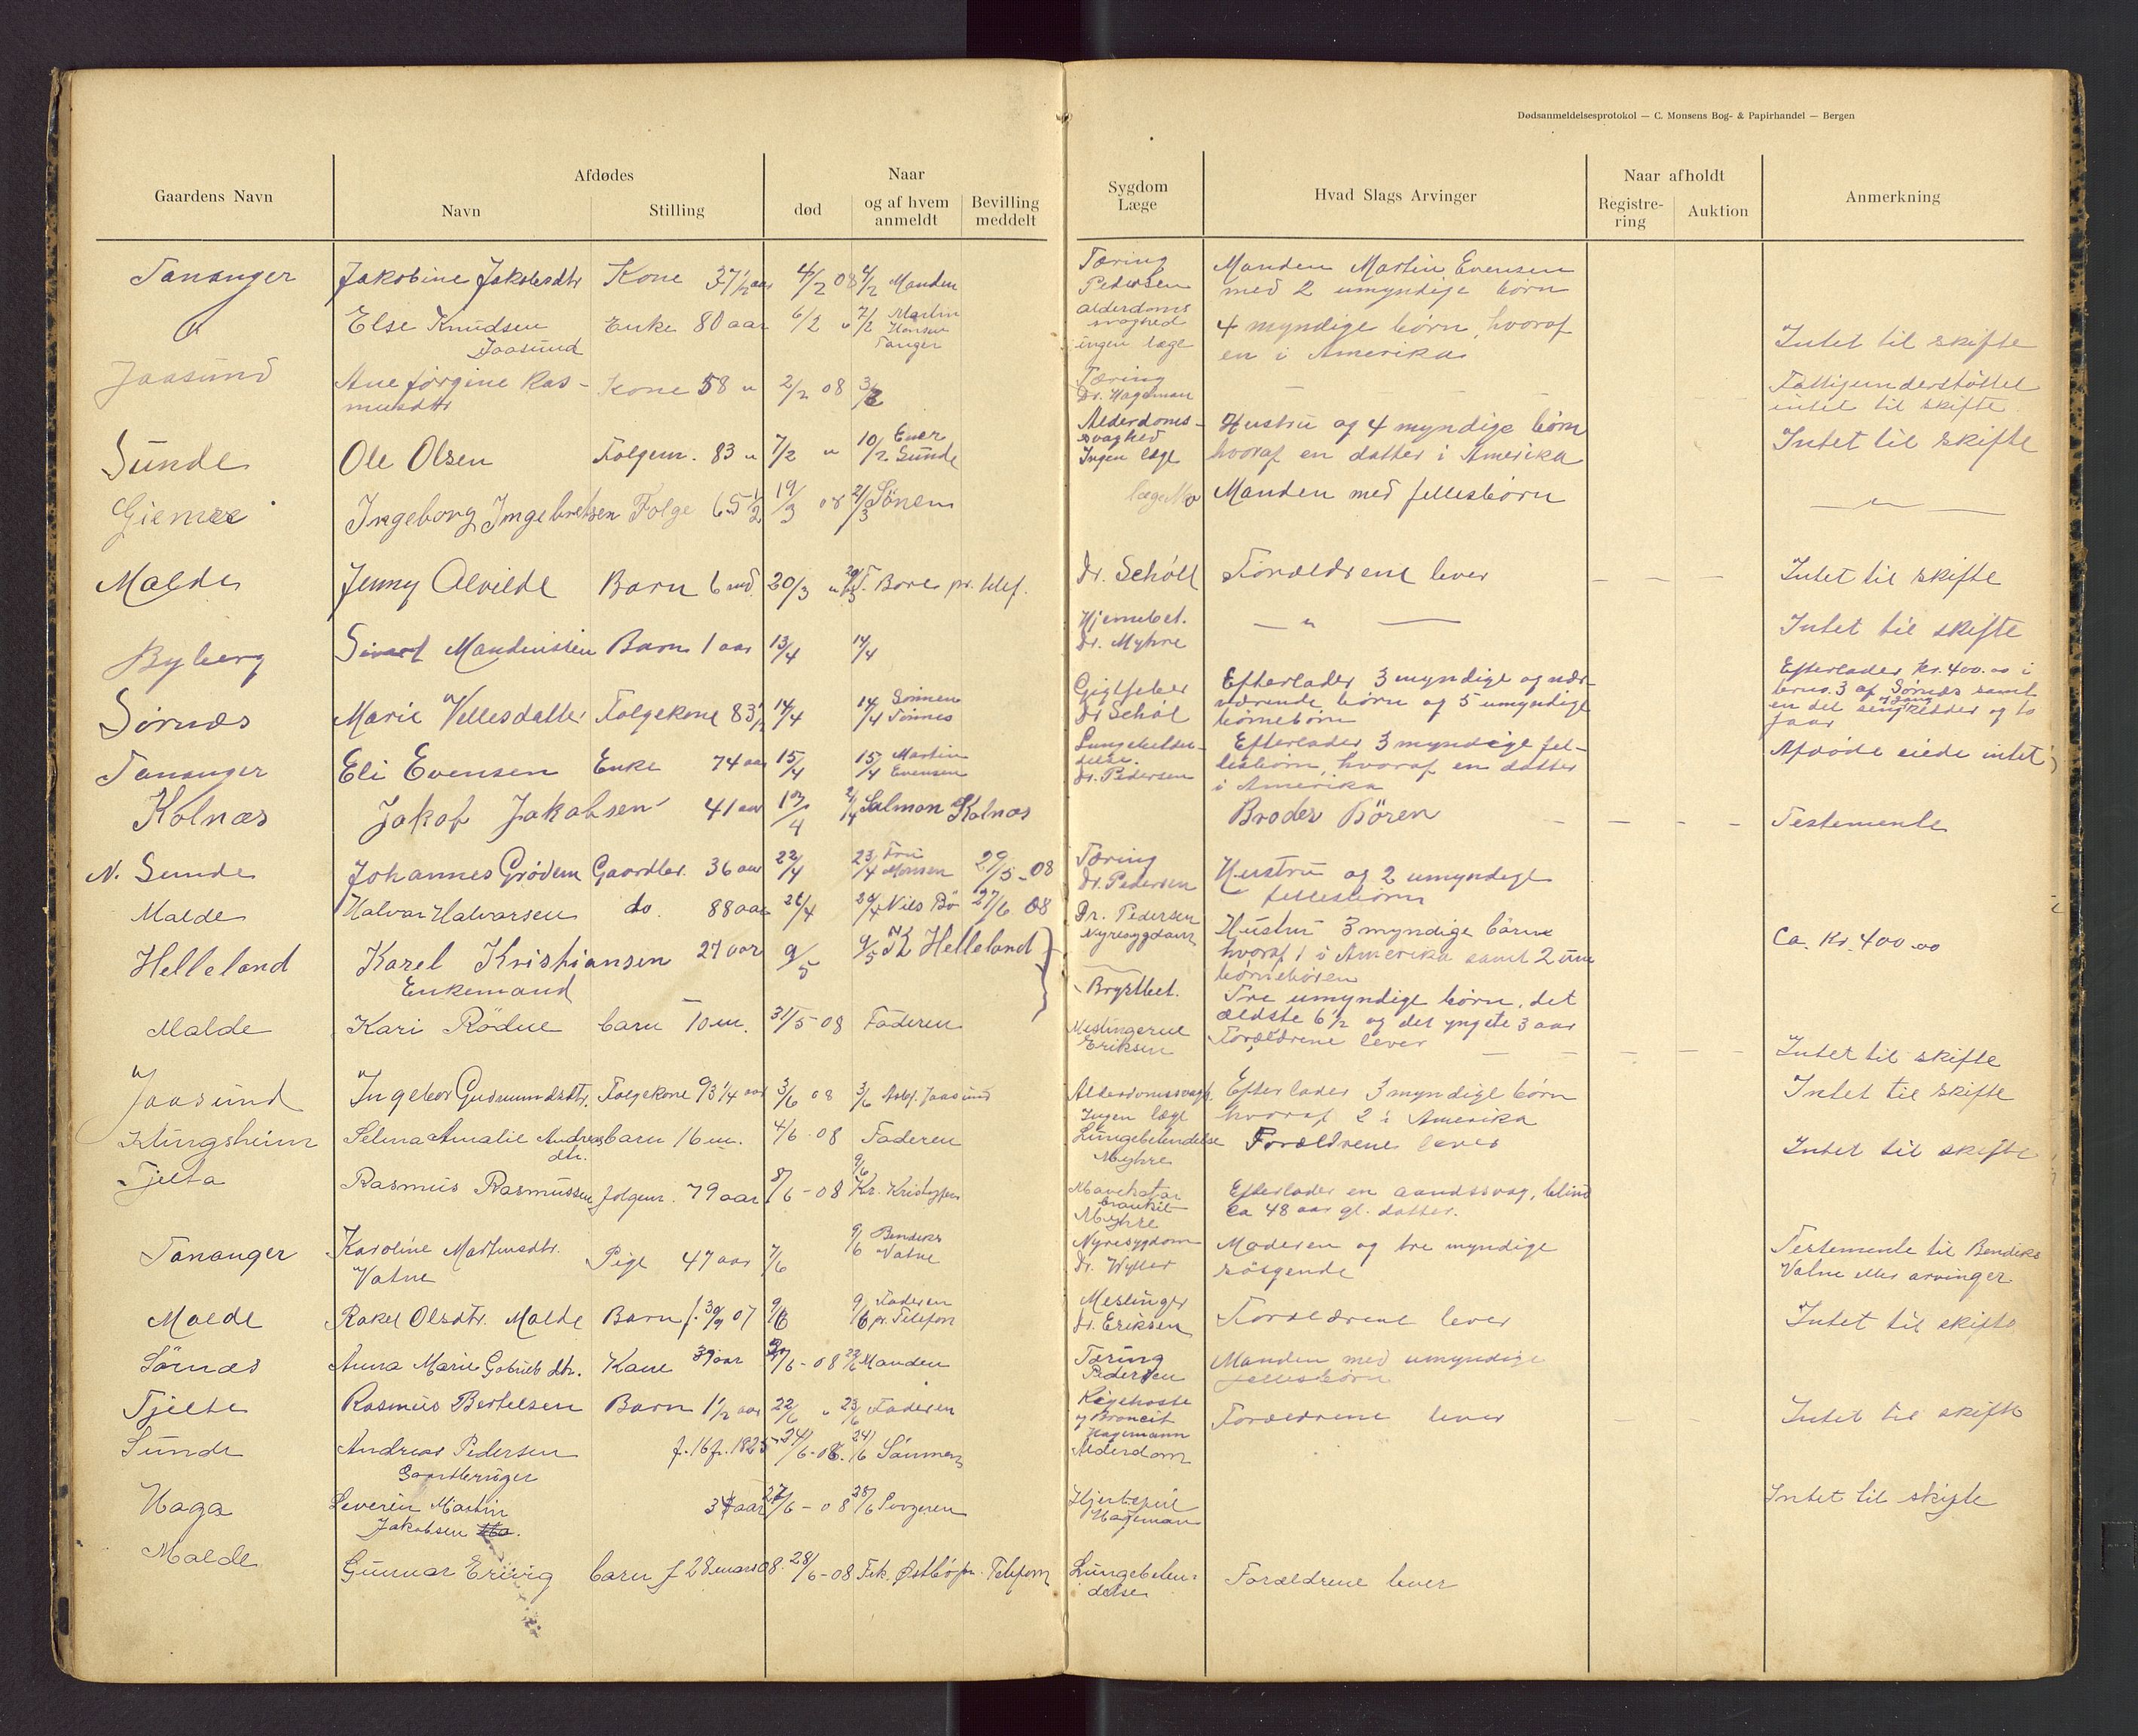 Dødsanmeldelsesprotokol — C. Monsens Bog- & Papirhandel — Bergen
Gaardens Navn
Afdødes
Navn
Stilling
Naar
død
og af hvem anmeldt
Bevilling meddelt
Sygdom Læge
Hvad Slags Arvinger
Naar afholdt
Registre-ring
Auktion
Anmerkning
Tananger Jakobine Jakobsdtr Kone 37 1/2 aar 4/2 08 4/2 Manden Tæring Pedersen Manden Martin Evensen
med 2 umyndige børn
" Else Knudsen Enke 80 aar 6/2 " 7/2 Martin Hansen Tanger Alderdoms svaghed ingen læge 4 myndige børn, hvoraf
Jaasund en i Amerika Intet til skifte
Jaasund Ane Jørgine Ras- Kone 58 " 2/2 08 3/2 Tæring Dr. Hageman — Fattigunderstøttet
musdtr intet til skifte.
Sunde Ole Olsen Folgem. 83 " 7/2 " 10/2 Sunde Alderdoms- svaghed Ingen læge Hustru og 4 myndige børn
hvoraf en datter i Amerika Intet til skifte
Ingeborg Ingebretsen Folge 65 1/2 19/3 08 21/3 Sønen læge Manden med fellesbørn — " —
Malde Jenny Alvilde Barn 6 md. 20/3 " T. Bore pr. telef. Dr. Schöll Forældrene lever — — Intet til skifte
Byberg Barn 1 aar 13/4 14/4 Hjernebet. Dr. Myhre — " — Intet til skifte
Sørnæs Marie Vellesdatter Folgekone 83 1/2 14/4 14/4 Sønnen Tønnes Gigtfeber Dr Schöl Efterlader 3 myndige og nær-
værende børn og 5 umyndige
børnebørn Efterlader kr. 400.00 i
brns. 3 af Sørnæs samt
en del sengklæder og to
faar
Tananger Eli Evensen Enke 74 aar 15/4 15/4 Martin Evensen Dr. Pedersen Efterlader 3 myndige fel-
lesbørn, hvoraf en datter
i Amerika Afdøde eiede intet
Kolnæs Jakob Jakobsen 41 aar 4 Salmon Kolnæs Broder Bören — — — — Testemente
N. Sunde Johannes Grødem Gaardbr. 36 aar 22/4 23/4 Fru Monsen 29/5-08 Tæring Dr. Pedersen Hustru og 2 umyndige
fellesbørn
Malde Halvar Halvarsen do. 88 aar 26/4 Nils Bø 27/6 08 Dr. Pedersen Nyresygdom Hustru 3 myndige børn
hvoraf 1 i Amerika samt 2 um
børnebören Ca. Kr. 400.00
Helleland Karel Kristiansen 27 aar 9/5 9/5 Helleland Brystbet. Tre umyndige børn, det
Enkemand ældste 6 1/2 og det yngste 3 aar
Malde Kari Rödne barn 10 m. 31/5-08 Faderen Meslingerne Eriksen Forældrene lever — — — — — Intet til skifte
Jaasund Ingebor Gudmundsdtr. Folgekone 93 1/4 aar 3/6 08 3/6 Jaasund Alderdomssvagh. Ingen læge Efterlader 3 myndige børn
hvoraf 2 i Amerika Intet til skifte
Klingsheim Selma Amalie Andreas dtr. barn 16 m. 4/6-08 Faderen Lungebetendelse Myhre Forældrene lever Intet til skifte
Tjelta Rasmus Rasmussen folgem. 79 aar 8/6-08 9/6 Kr. Kristoffers Mavekatar Myhre Efterlader en aandssvag, blind
ca 48 aar gl. datter.
Tananger Karoline Martinsdtr. Pige 47 aar 7/6 9/6 Bendiks Vatne Nyresygdom Dr. Wyller Moderen og tre myndige
Vatne søsgende Testemente til Bendiks
Vatne eller arvinger
Malde Rakel Olsdtr. Malde Barn f. 30/9 07 9/6 9/6 Faderen pr. Telefon Meslinger Dr. Eriksen Forældrene lever Intet til skifte
Sörnæs Anna Marie Gabriels dtr. Kone 39 aar 6-08 Manden Tæring Pedersen Manden med umyndige
fellesbörn
Tjelta Rasmus Bertelsen Barn 1 1/2 aar 22/6 " 23/6 Faderen Kigehoste og Broncit Hagemann Forældrene lever Intet til skifte
Sunde Andreas Pedersen f. 16/7. 1825 24/6-08. 24/6 Sönnen Alderdom
Gaardbruger
Haga Severin Martin aar 27/6-08 28/6 Hjertefeil Hageman Intet til skifte
Jakobsen
Malde Gunnar Ervig barn f 28 mars 08. 28/6-08 Frk. Østbö pr. Telefon Lungebeten-delse Forældrene lever